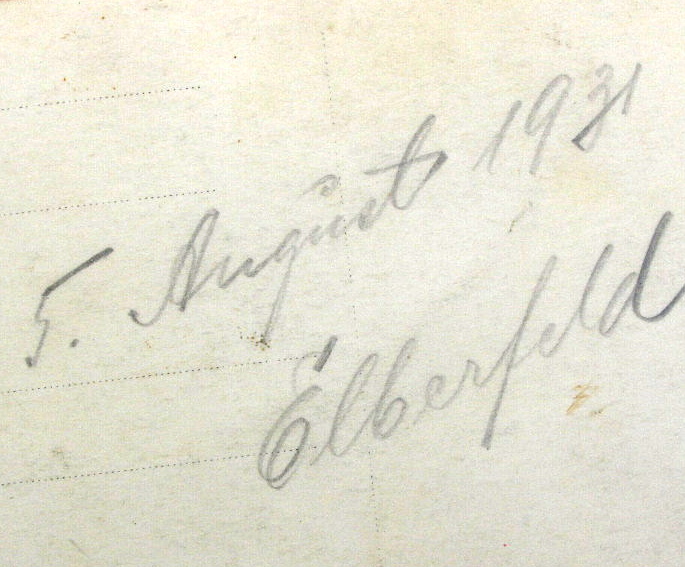 5. August 1931
Elberfeld